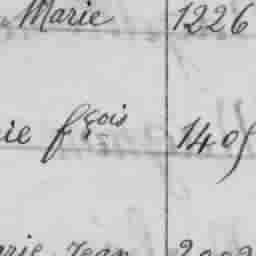 Marie 1226
ie fçois 1405
rie Jean 2002